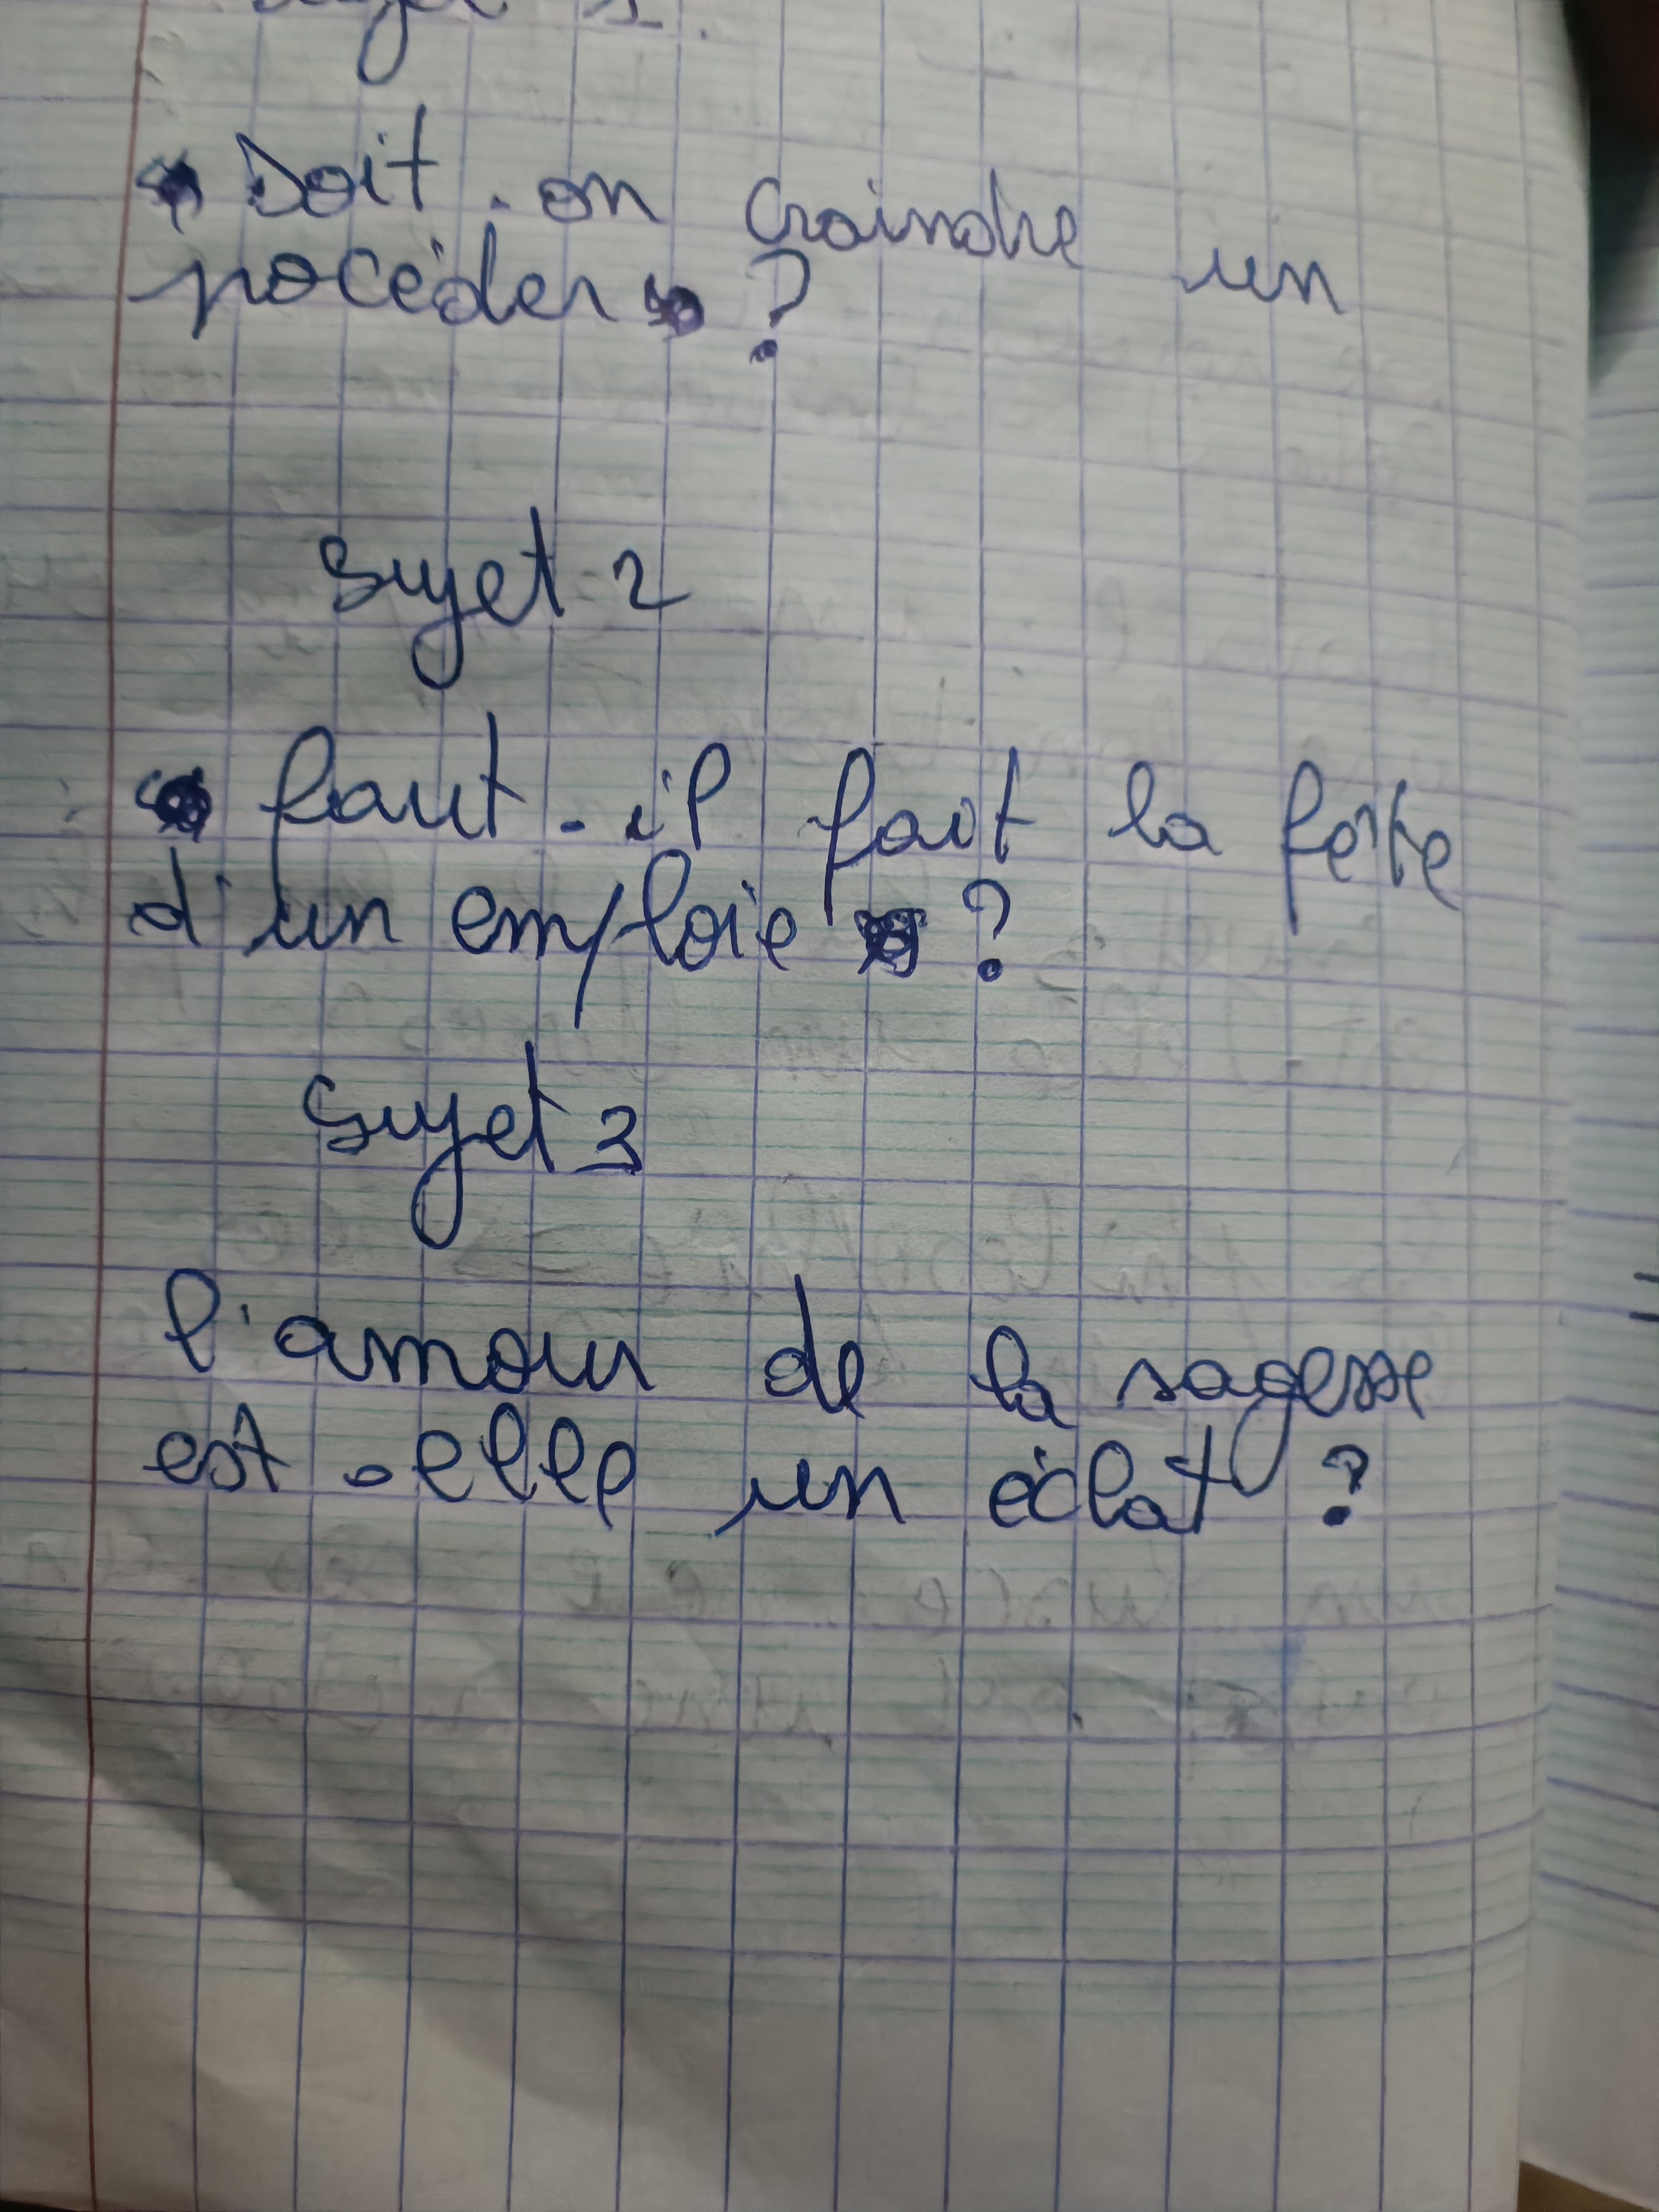 sujet 1.
Doit-on craindre un
pocéder ?
sujet 2
faut-il fait la fête
d'un emploie ?
sujet 3
l'amour de la sagesse
est-elle un éclat ?